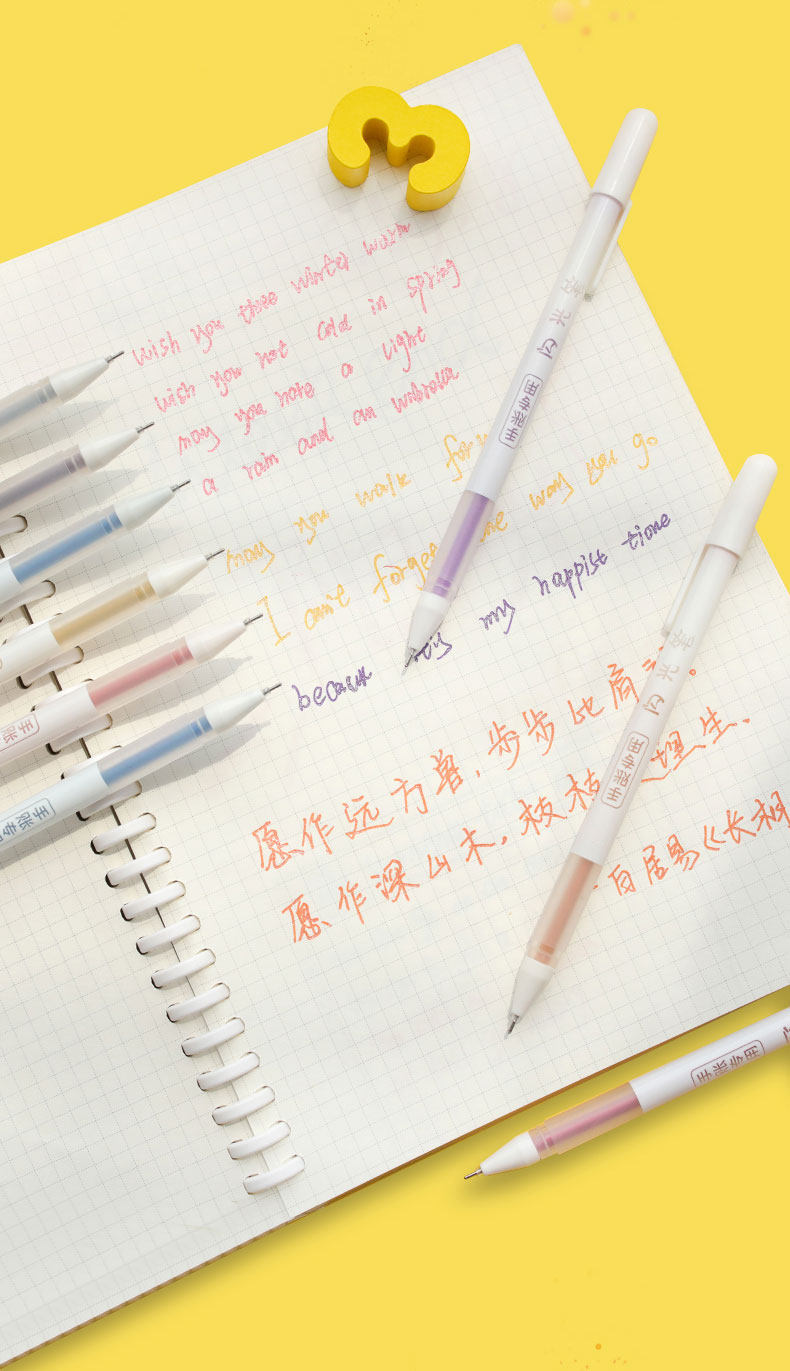 wish you three winter warm
wish you not cold in spring
may you have a light
a rain and an umbrella
may you walk
I can't forget the way you go
because my happist time
愿作远方兽，步步比肩
愿作深山木，枝枝连理生．
白居易《长相
闪光笔
手账专用
闪光笔
手账专用
手账专用
手账
手账专用